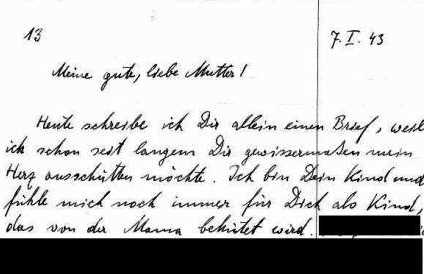 13
7.I.43
Meine gute, liebe Mutter!
Heute schreibe ich Dir allein einen Brief, weil
ich schon seit langem Dir gewissermaßen mein
Herz ausschütten möchte. Ich bin Dein Kind und
fühle mich noch immer für Dich als Kind,
das von der Mama behütet wird.